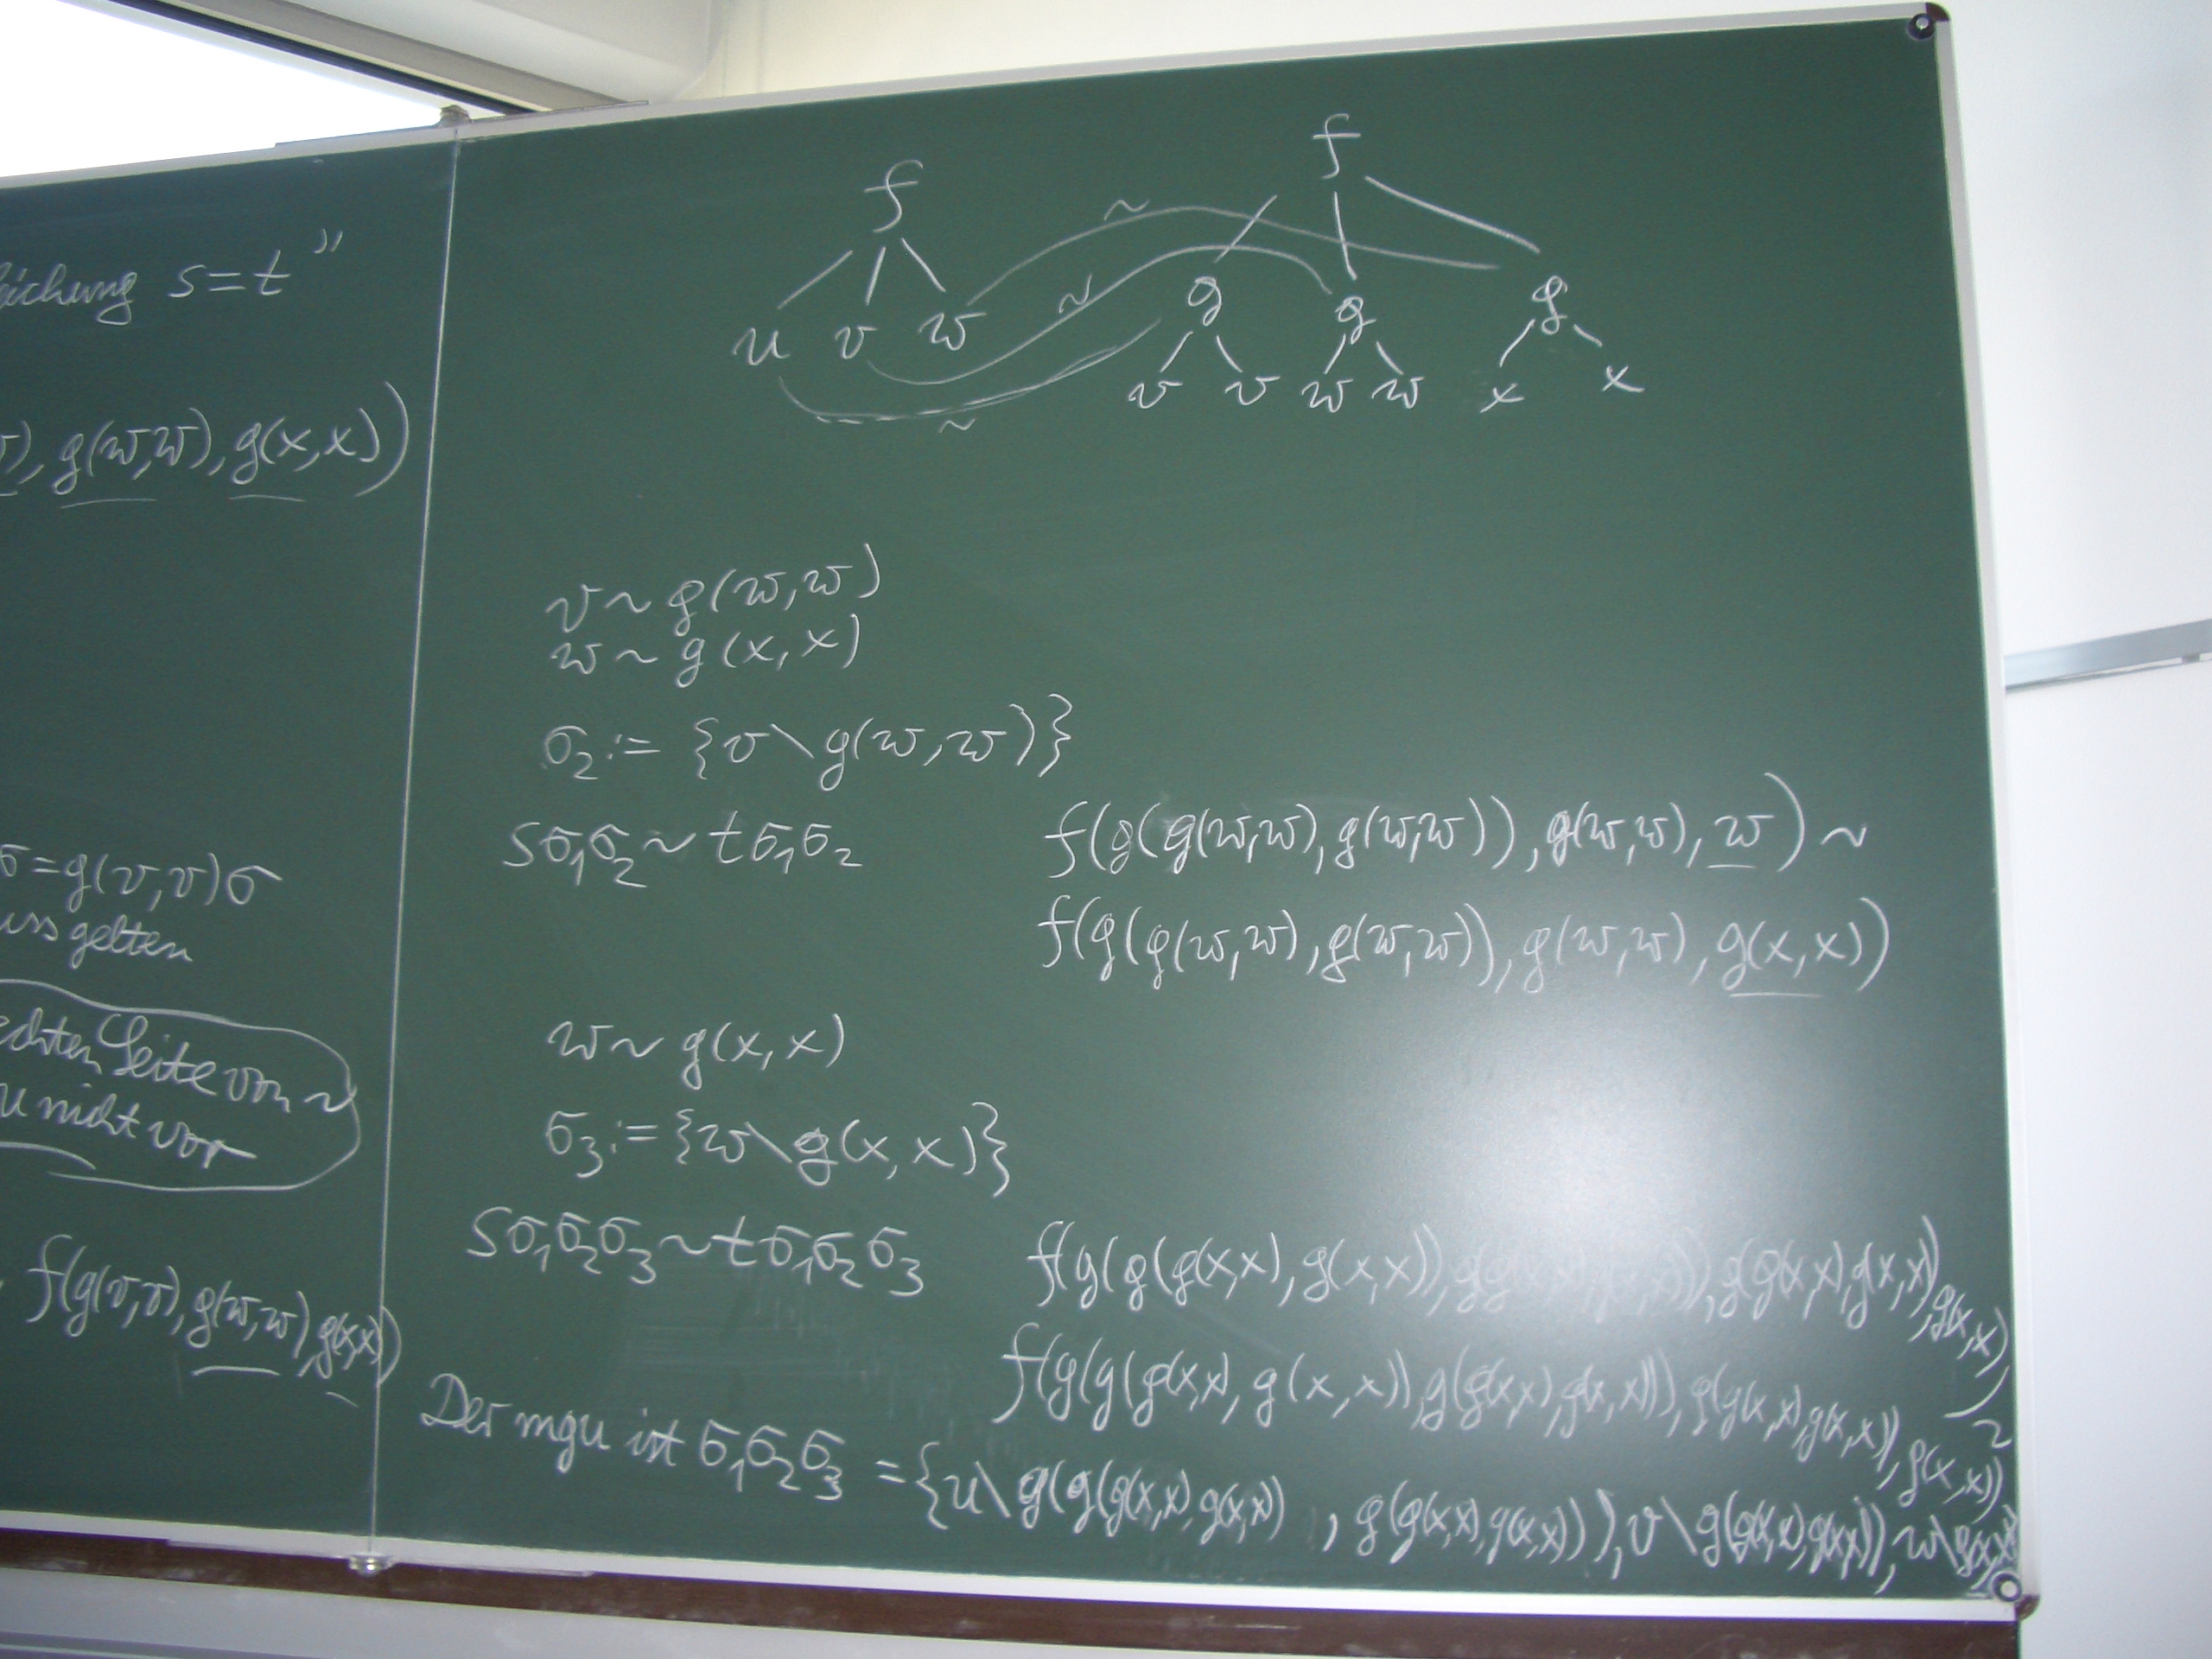 s=t"
, g(w,w), g(x,x))
σ=g(v,v)σ
gelten
Seite von ~
u nicht vor
f(g(v,v), g(w,w), g(x,x))
f f
~
~
u v w g g g
v v w w x x
~
v ~ g(w,w)
w ~ g(x,x)
σ₂ := {v\g(w,w)}
sσ₁σ₂ ~ tσ₁σ₂ f(g(g(w,w), g(w,w)), g(w,w), w) ~
f(g(g(w,w), g(w,w)), g(w,w), g(x,x))
w ~ g(x,x)
σ₃ := {w\g(x,x)}
sσ₁σ₂σ₃ ~ tσ₁σ₂σ₃ f(g(g(g(x,x), g(x,x)), g(g(x,x), g(x,x))), g(g(x,x), g(x,x)), g(x,x)) ~
f(g(g(g(x,x), g(x,x)), g(g(x,x), g(x,x))), g(g(x,x), g(x,x)), g(x,x))
Der mgu ist σ₁σ₂σ₃ = {u\g(g(g(x,x), g(x,x)) , g(g(x,x), g(x,x))), v\g(g(x,x), g(x,x)), w\g(x,x)